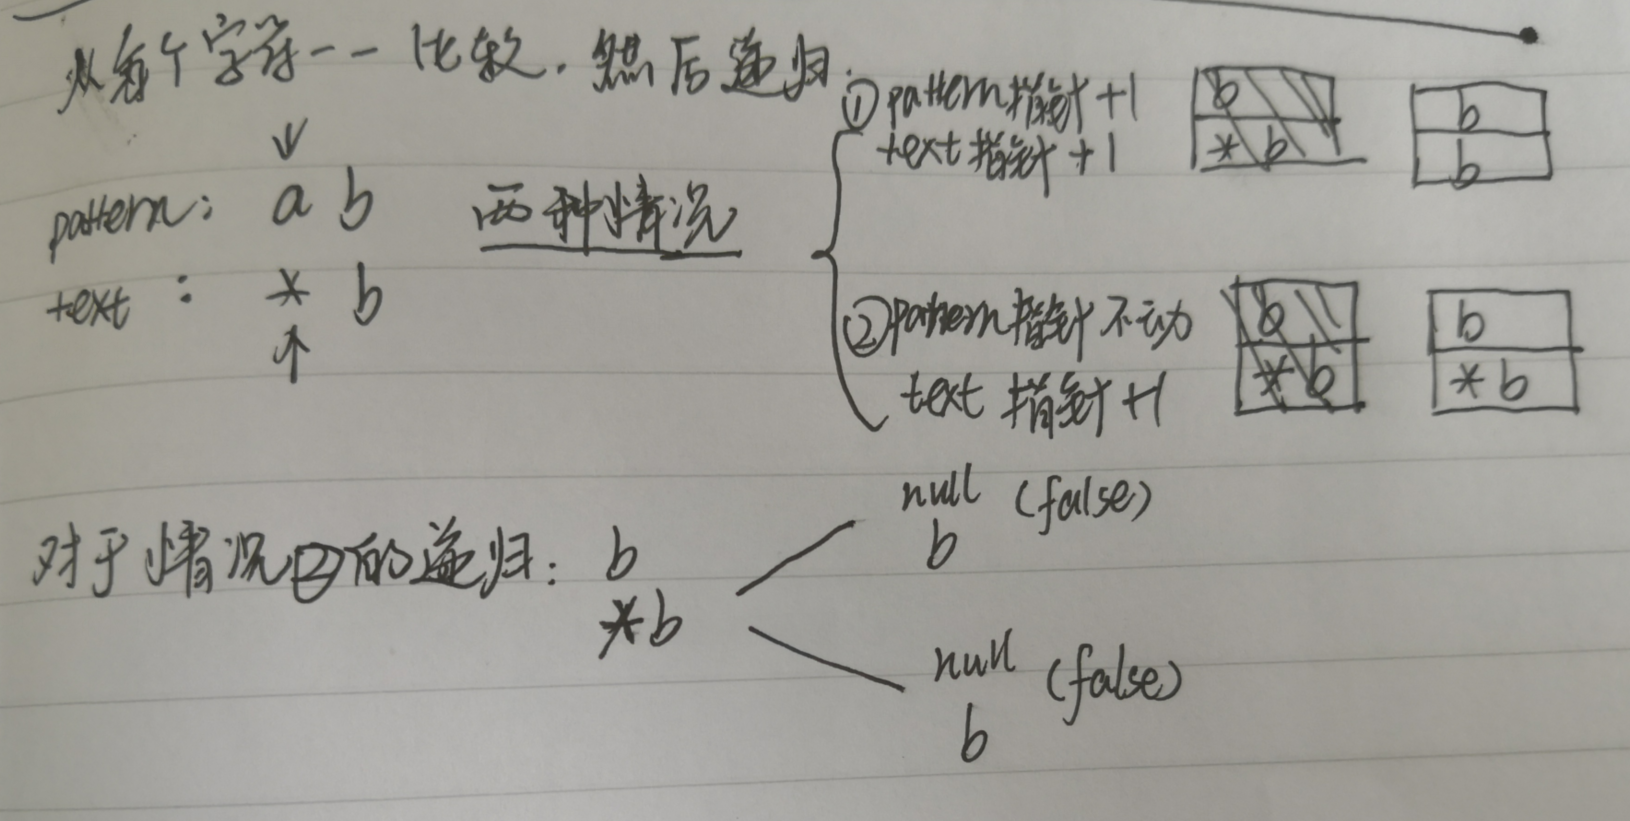 从每个字符一一比较.然后递归.
pattern: a b
text : * b
两种情况
①pattern指针+1
text指针+1
b
* b
b
b
②pattern指针不动
text 指针+1
b
* b
b
* b
对于情况②的递归: b
*b
null (false)
b
null (false)
b